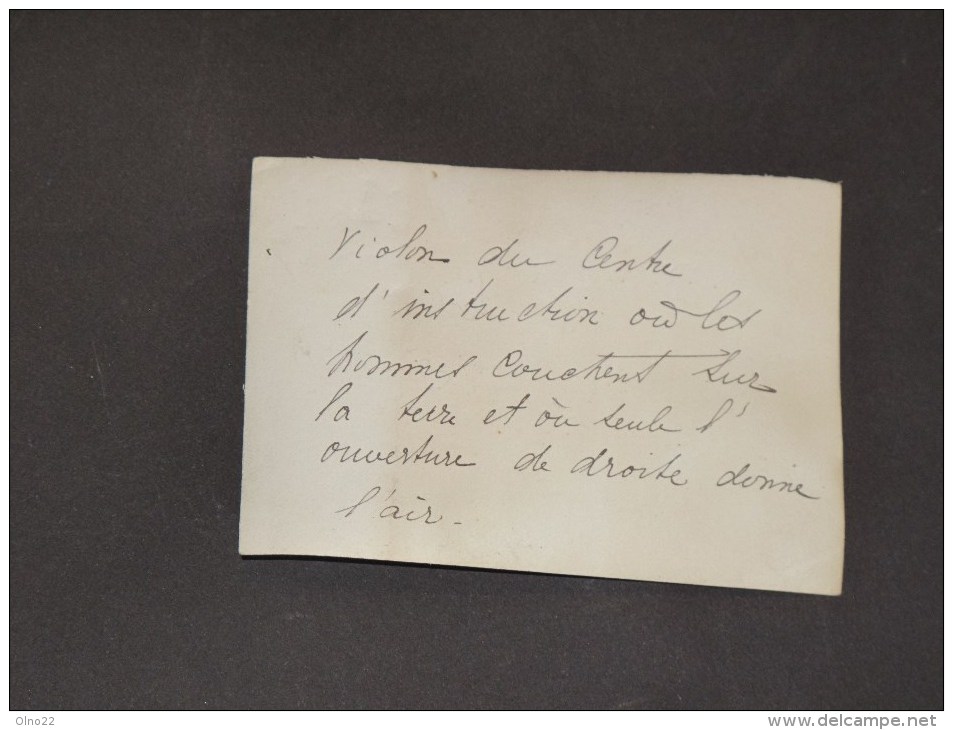 Violon du Centre
d'instruction où les
hommes couchent sur
la terre et òu seule l'
ouverture de droite donne
l'air.
Olno22
www.delcampe.net